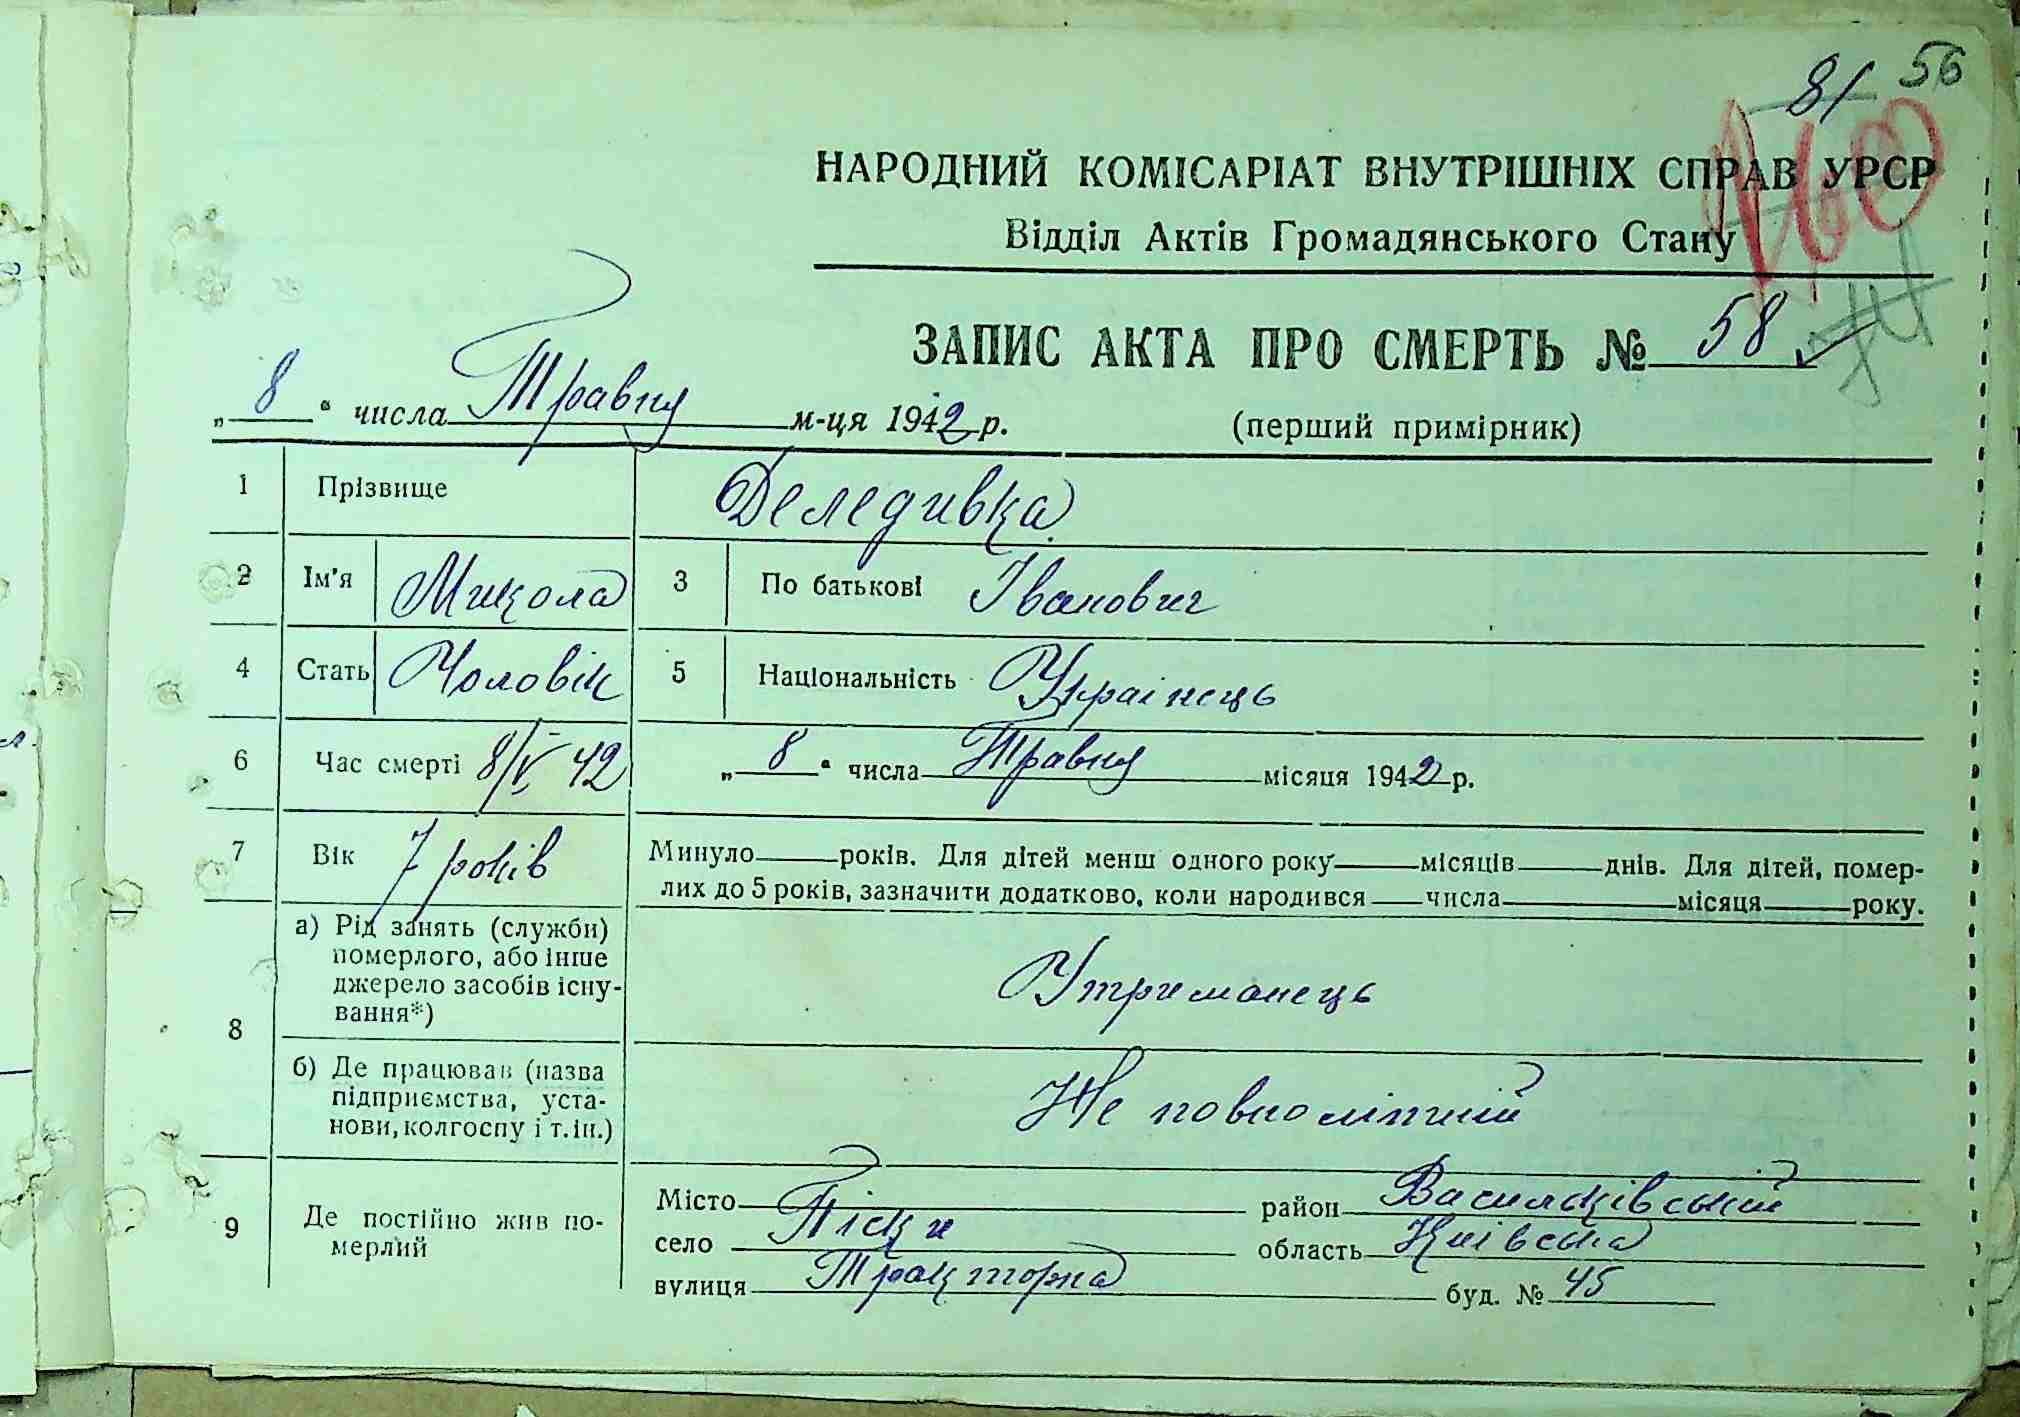 81 56
160
НАРОДНИЙ КОМІСАРІАТ ВНУТРІШНІХ СПРАВ УРСР
Відділ Актів Громадянського Стану
ЗАПИС АКТА ПРО СМЕРТЬ № 58
„ 8 “ числа Травня м-ця 1942 р. (перший примірник)
1 Прізвище Деледивка
2 Ім'я Микола 3 По батькові Іванович
4 Стать Чоловік 5 Національність Украінець
6 Час смерті 8/V 42 „ 8 “ числа Травня місяця 1942 р.
7 Вік 7 років Минуло років. Для дітей менш одного року місяців днів. Для дітей, помер-
лих до 5 років, зазначити додатково, коли народився числа місяця року.
8 а) Рід занять (служби)
померлого, або інше
джерело засобів існу-
вання*)
Утриманець
б) Де працював (назва
підприємства, уста-
нови, колгоспу і т.ін.)
Не повнолітний
9 Де постійно жив по-
мерлий
Місто район Васильківський
село Піски область Київська
вулиця Тракторна буд. № 45